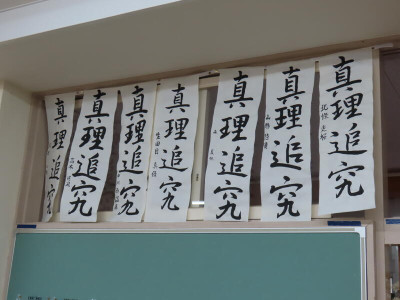 真理追究
真理追究
真理追究
真理追究
真理追究
真理追究
真理追究